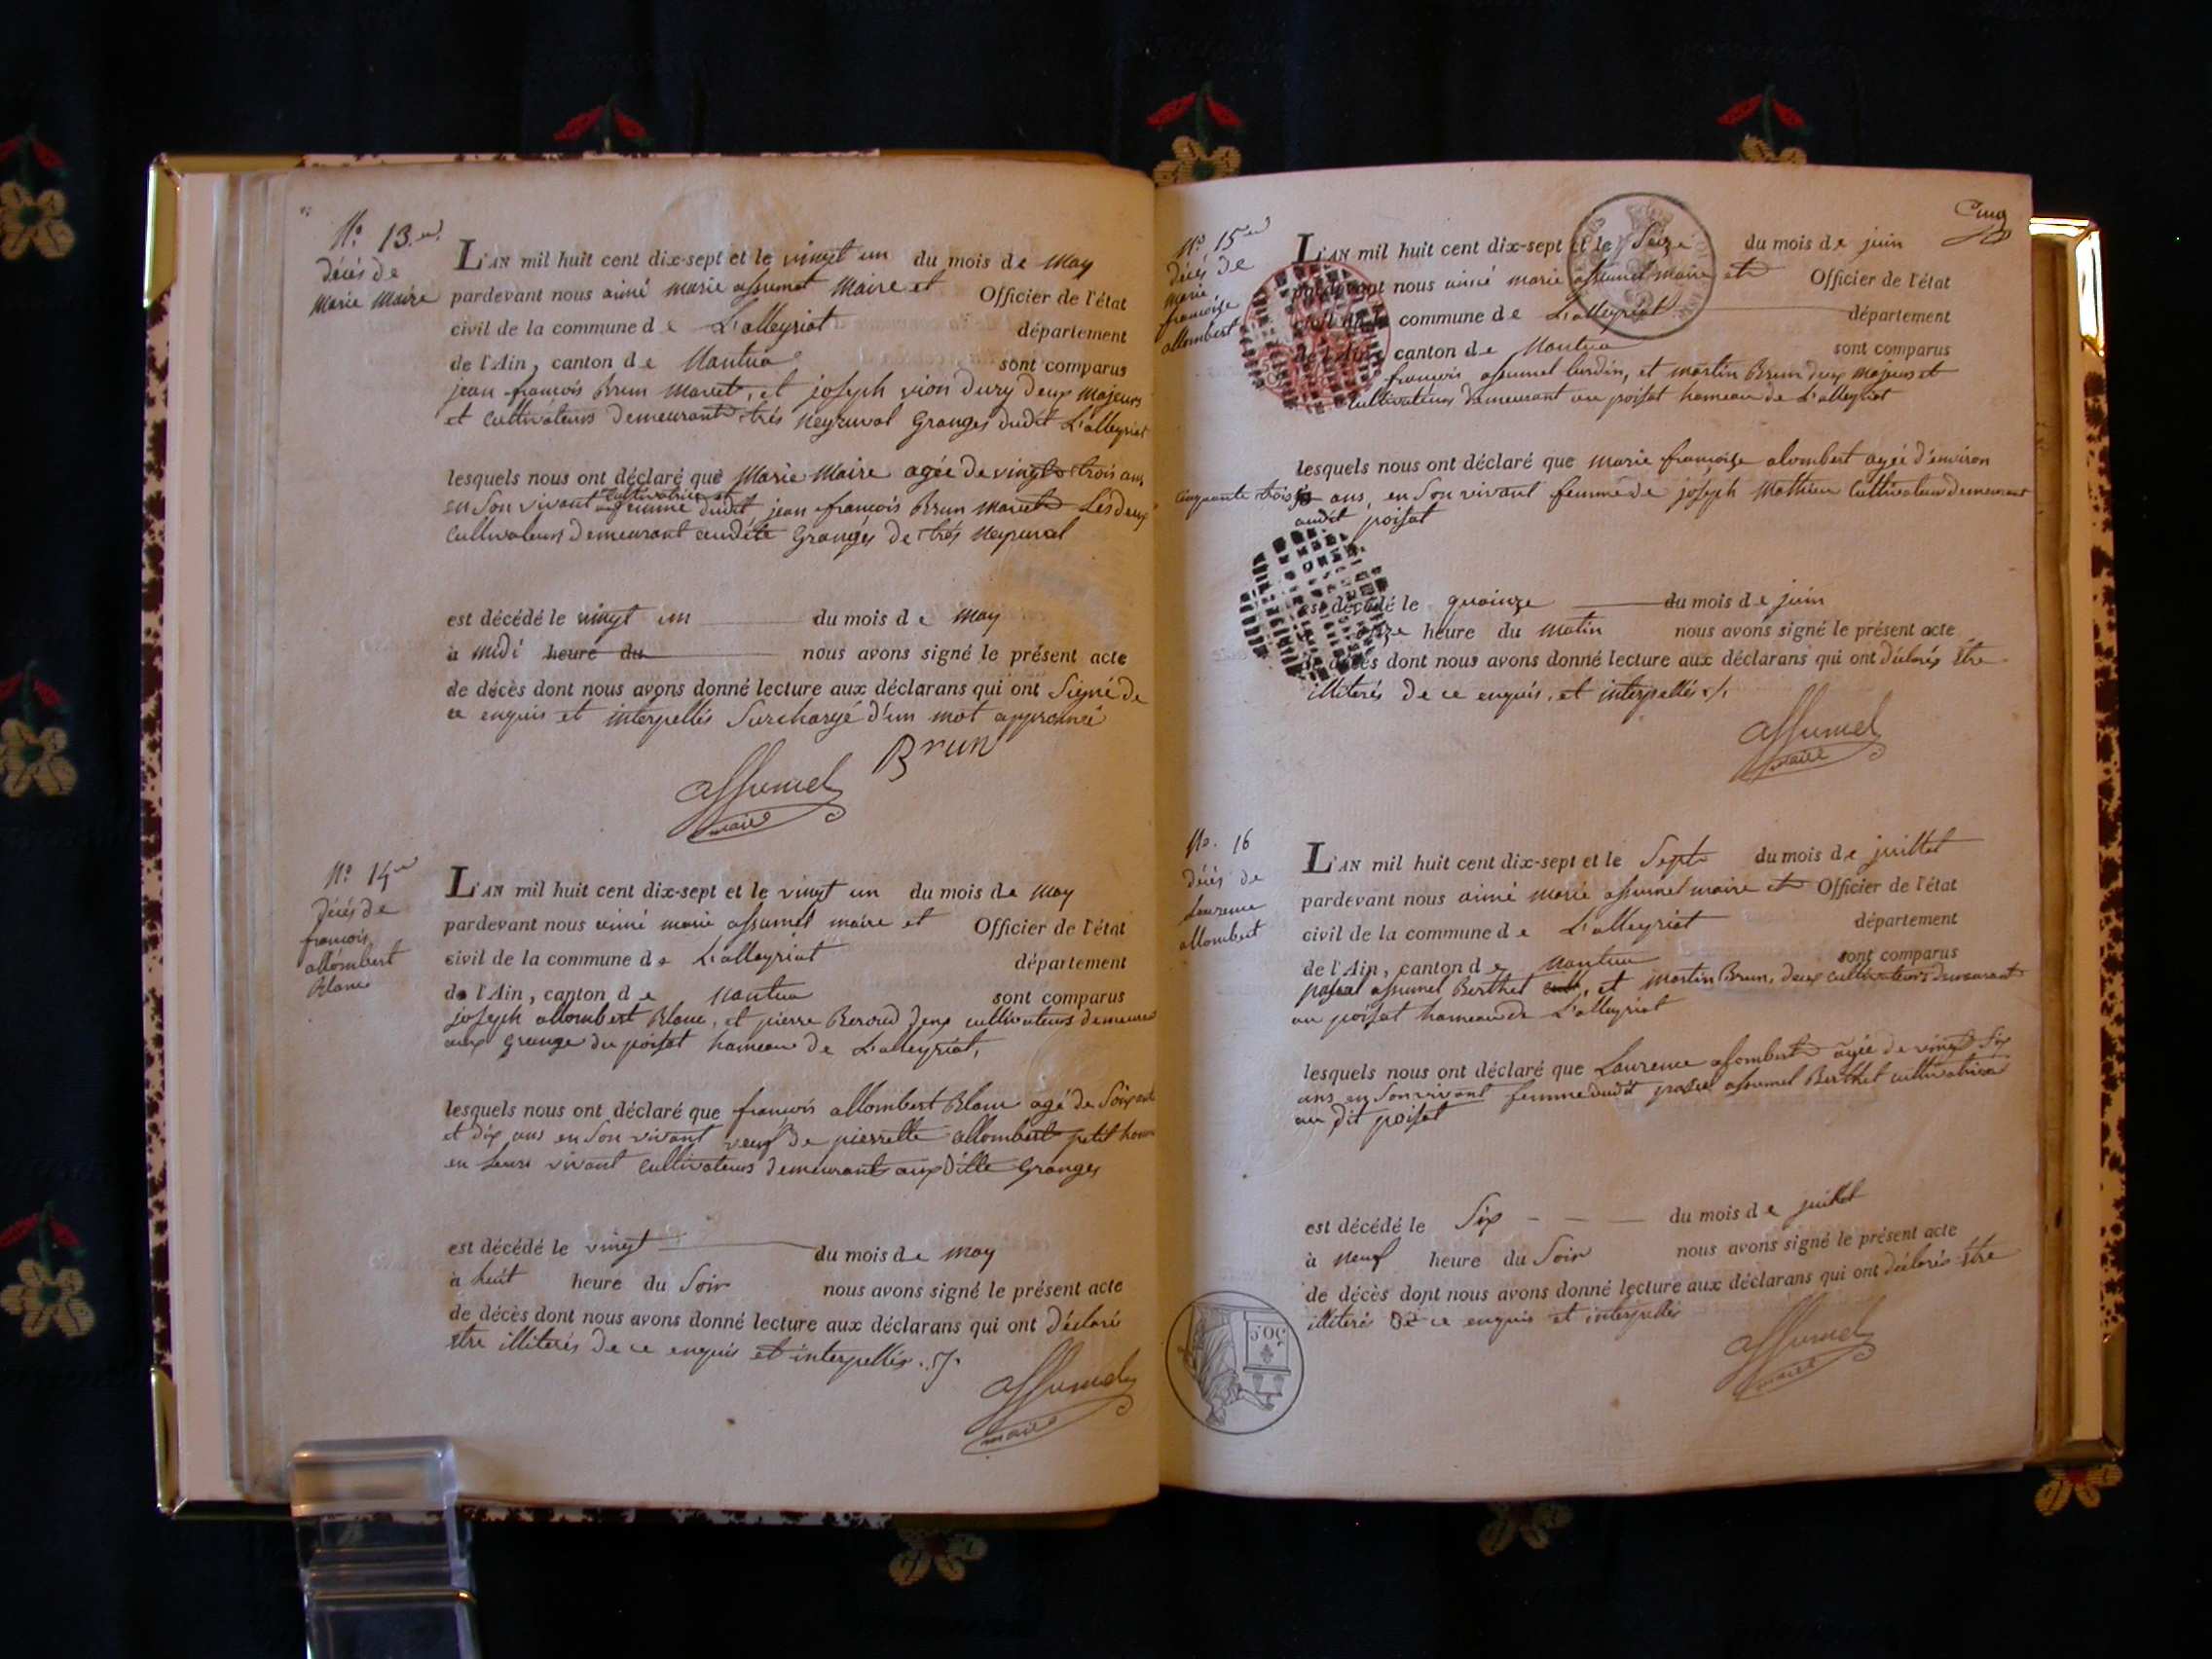 N.o 13.e
décés de
marie maire
L'AN mil huit cent dix-sept et le vingt un du mois de may
pardevant nous aimé marie assumel maire et Officier de l'état
civil de la commune de L'alleyriat département
de l'Ain, canton de Nantua sont comparus
jean françois Brun Maret, et joseph vion dury deux majeurs
et cultivateurs demeurant Granges dudit L'alleyriat
lesquels nous ont déclaré que Marie Maire agée de vingt trois ans
cultivatrice et
en son vivant femme dudit jean françois Brun Les deux
cultivateurs demeurant Granges de
est décédé le vingt un du mois de may
à midi heure du nous avons signé le présent acte
de décès dont nous avons donné lecture aux déclarans qui ont signé de
ce enquis et interpellés Surchargé d'un mot approuvé
Brun
assumel
maire
N.o 14.e
décés de
françois
allombert
Blanc
L'AN mil huit cent dix-sept et le vingt un du mois de may
pardevant nous aimé marie assumel maire et Officier de l'état
civil de la commune de L'alleyriat département
de l'Ain, canton de Nantua sont comparus
joseph allombert Blanc, et pierre Beroud deux cultivateurs demeurant
aux grange du poisat hameau de L'alleyriat,
lesquels nous ont déclaré que françois allombert Blanc agé de Soixante
et dix ans en son vivant veuf de pierrette allombert petit
en leurs vivant cultivateurs demeurants aux ditte Granges
est décédé le vingt du mois de may
à huit heure du Soir nous avons signé le présent acte
de décès dont nous avons donné lecture aux déclarans qui ont déclaré
être illiterés de ce enquis et interpellés.
assumel
maire
Cinq
N.o 15.e
décés de
marie
françoise
allombert
L'AN mil huit cent dix-sept et le Seize du mois de juin
pardevant nous aimé marie assumel maire et Officier de l'état
civil de la commune de L'alleyriat département
de l'Ain, canton de Nantua sont comparus
françois assumel lurdin, et martin Brun deux majeurs et
cultivateurs demeurant au poisat hameau de L'alleyriat
lesquels nous ont déclaré que marie françoise alombert agée d'environ
cinquante trois ans, en son vivant femme de joseph Mathieu cultivateur demeurant
audit poisat
est décédé le quainze du mois de juin
onze heure du matin nous avons signé le présent acte
de décès dont nous avons donné lecture aux déclarans qui ont déclarés être
illiterés de ce enquis, et interpellés
assumel
maire
N.o 16
décés de
Laurence
allombert
L'AN mil huit cent dix-sept et le Sept du mois de juillet
pardevant nous aimé marie assumel maire et Officier de l'état
civil de la commune de L'alleyriat département
de l'Ain, canton de Nantua sont comparus
pascal assumel Berthet, et martin Brun, deux cultivateurs demeurant
au poisat hameau de L'alleyriat
lesquels nous ont déclaré que Laurence alombert agée de vingt Six
ans en son vivant femme dudit assumel Berthet cultivatrice
au dit poisat
est décédé le Six du mois de juillet
à neuf heure du Soir nous avons signé le présent acte
de décès dont nous avons donné lecture aux déclarans qui ont déclarés être
illiterés de ce enquis et interpellés
assumel
maire
50 C.